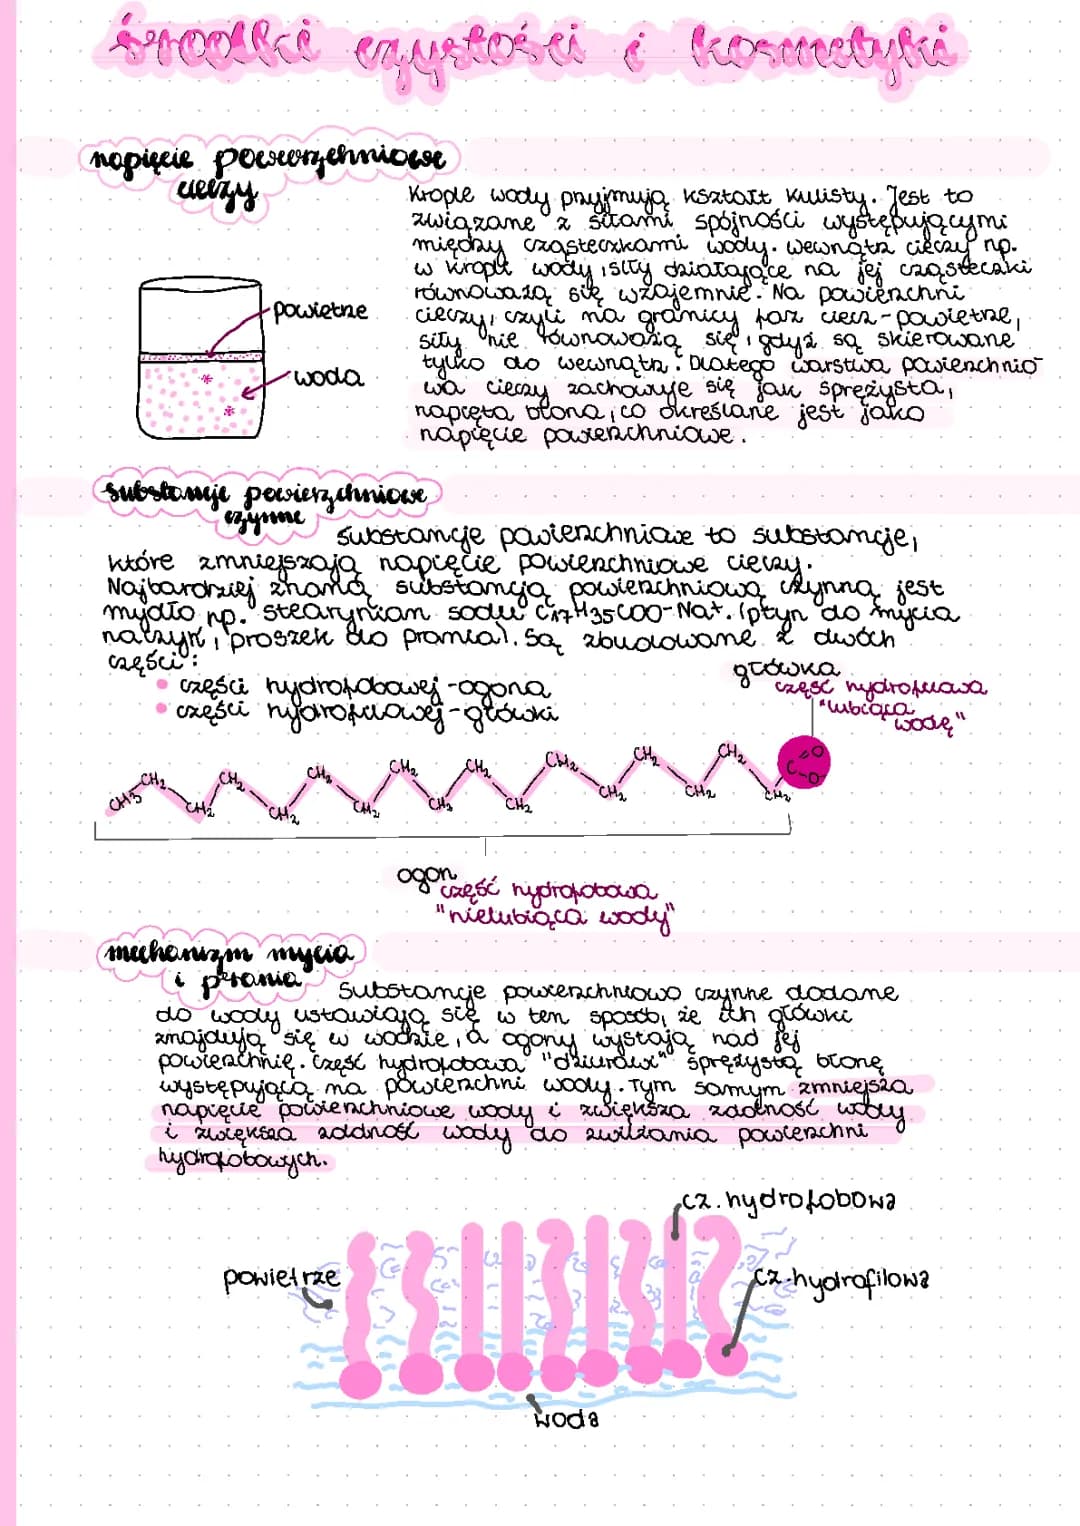 środki czystości i kosmetyki
napięcie powierzchniowe
cieczy
Krople wody przyjmują kształt kulisty. Jest to
związane z siłami spójności występującymi
między cząsteczkami wody. wewnątrz cieczy np.
w kropli wody, siły działające na jej cząsteczki
równoważą się wzajemnie. Na powierzchni
cieczy, czyli na granicy faz ciecz-powietrze,
siły nie równoważą się, gdyż są skierowane
tylko do wewnątrz. Dlatego warstwa powierzchnio
wa cieczy zachowuje się jak sprężysta,
napięta błona, co określane jest jako
napięcie powierzchniowe.
powietrze
woda
substancje powierzchniowe
czynne
Substancje powierzchniowe to substancje,
które zmniejszają napięcie powierzchniowe cieczy.
Najbardziej znaną substancją powierzchniową czynną jest
mydło np. stearynian sodu C17H35COO-Na+. (płyn do mycia
naczyń, proszek do prania). Są zbudowane z dwóch
części:
• części hydrofobowej -ogona
• części hydrofilowej -główki
główka
część hydrofilowa
"lubiąca
wodę"
CH3 CH2 CH2 CH2 CH2 CH2 CH2 CH2 CH2 CH2 CH2 CH2 CH2 CH2 CH2 CH2 CH2 C O O
ogon
część hydrofobowa
"nielubiąca wody"
mechanizm mycia
i prania
Substancje powierzchniowo czynne dodane
do wody ustawiają się w ten sposób, że ich główki
znajdują się w wodzie, a ogony wystają nad jej
powierzchnię. Część hydrofobowa "dziurawi" sprężystą błonę
występującą na powierzchni wody. Tym samym zmniejsza
napięcie powierzchniowe wody i zwiększa zdolność wody
i zwiększa zdolność wody do zwilżania powierzchni
hydrofobowych.
cz. hydrofobowa
powietrze
cz. hydrofilowa
woda